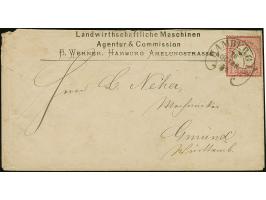 Landwirthschaftliche Maschinen
Agentur & Commission
B. Werner, Hamburg Amelungstrasse
HAMBURG
Herrn L. Neher,
Gmünd
Württemb.